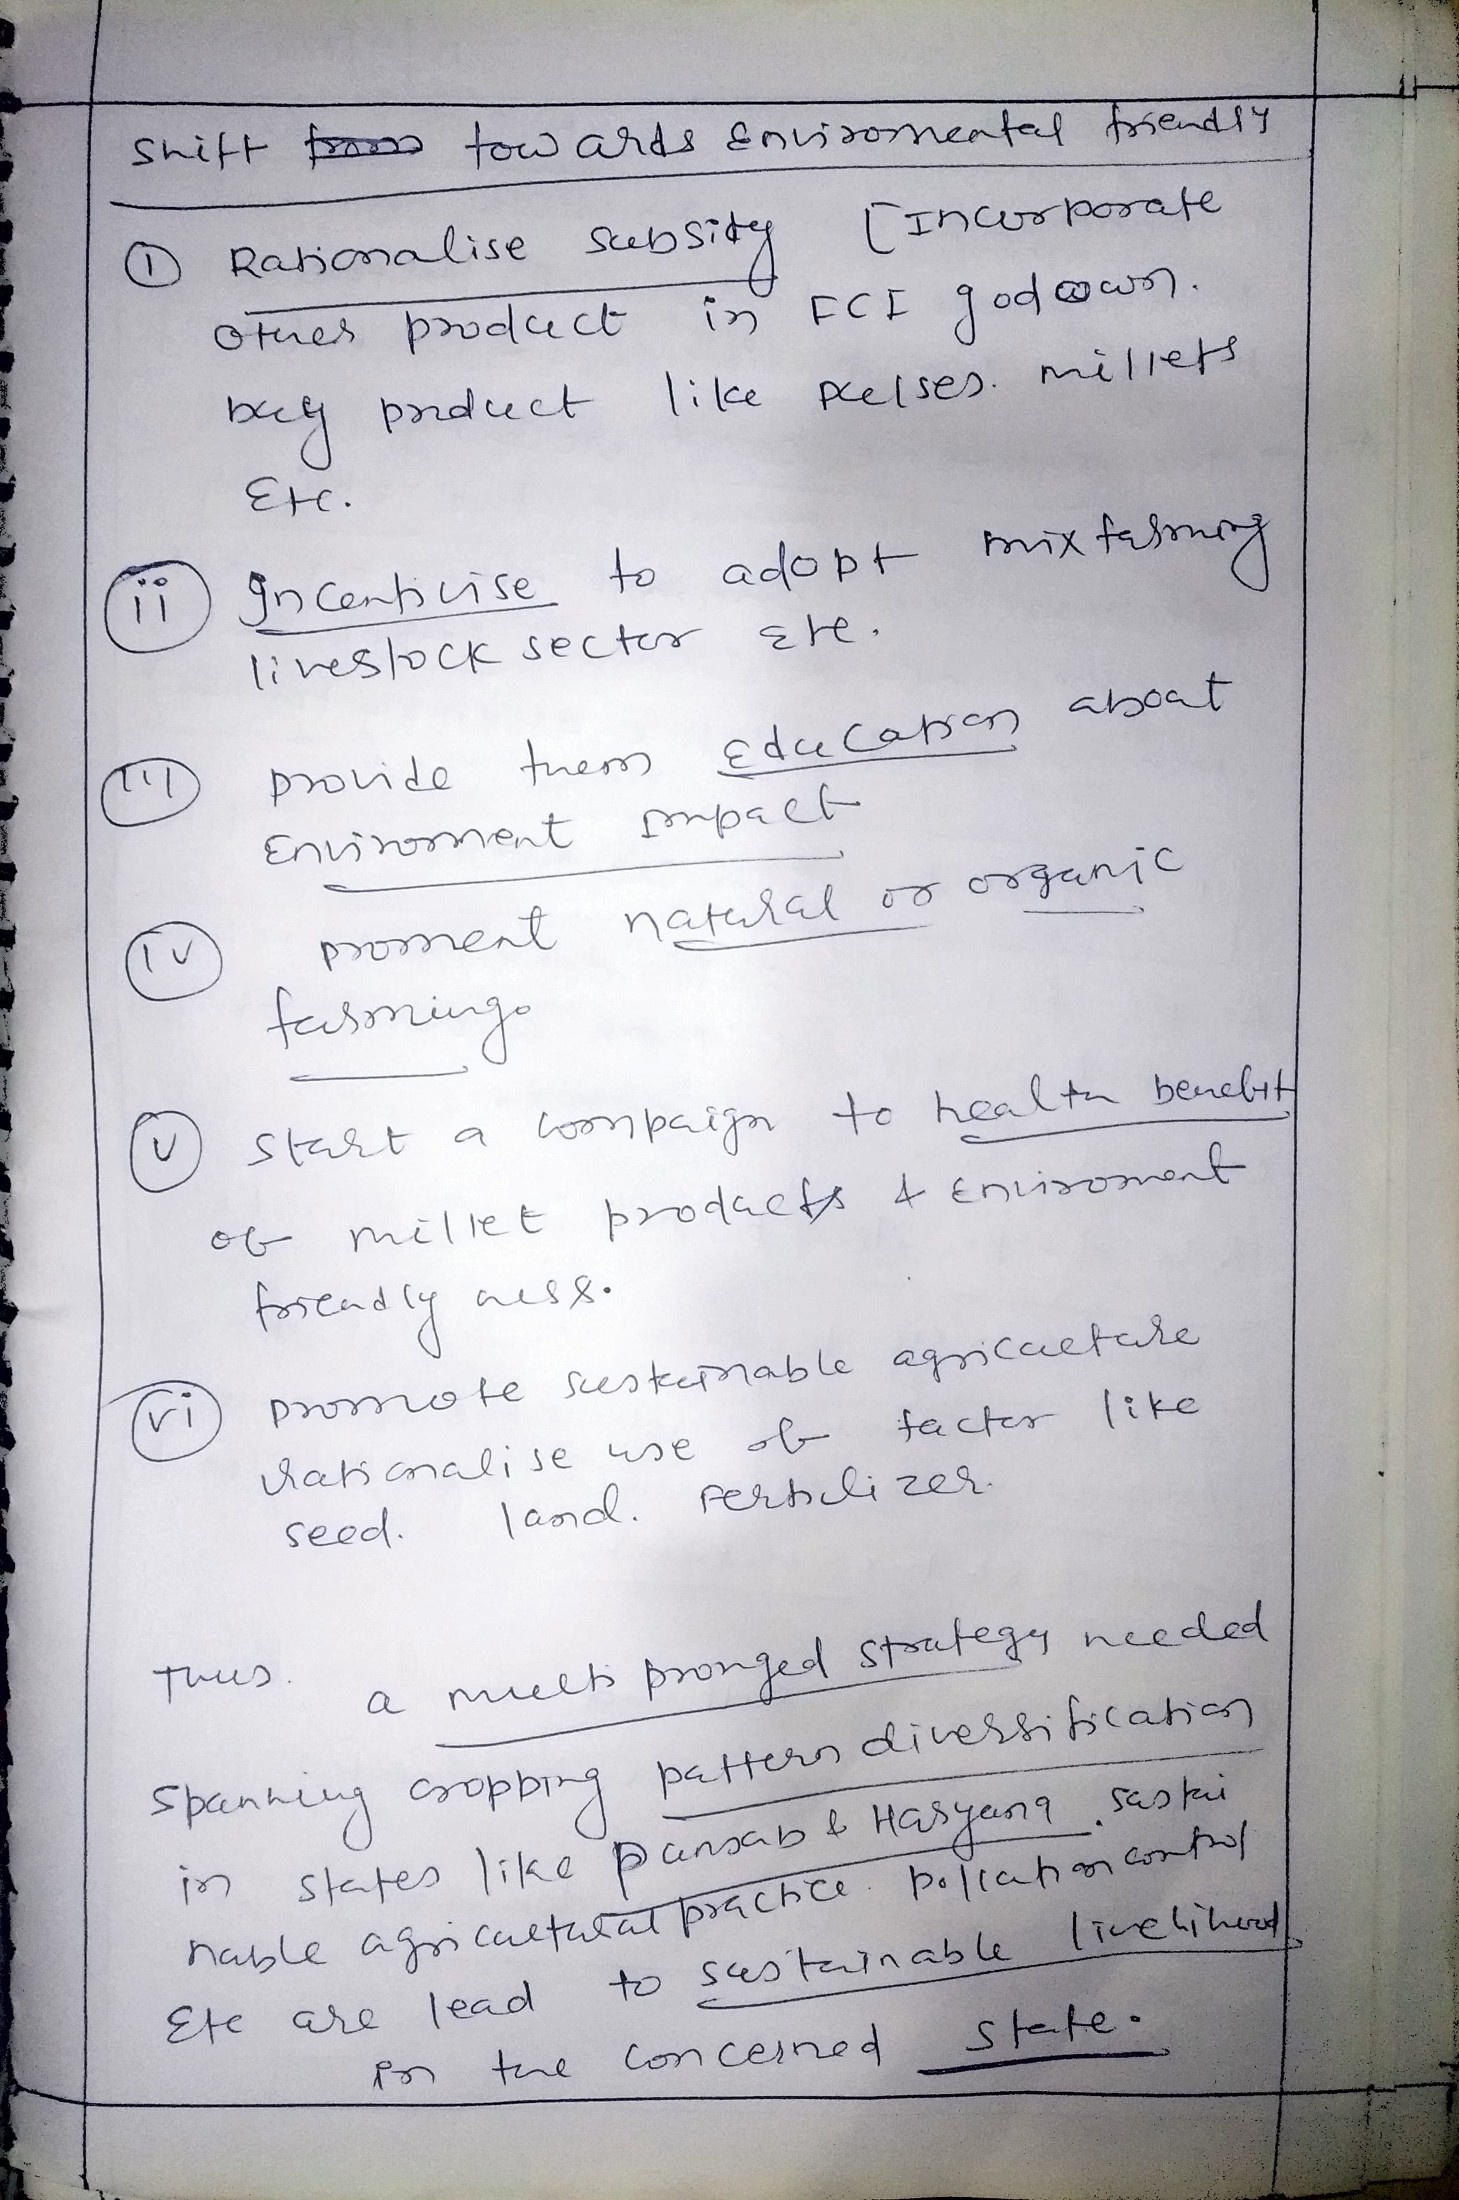 shift towards Enviromental friendly
① Rationalise subsidy [Incorporate
other product in FCI godown.
buy product like pulses. millets
Etc.
ii Incentivise to adopt mix farming
livestock sector Etc.
iii provide them Education about
Enviroment Impact
iv proment natural or organic
farming.
v start a compaign to health benefit
of millet products & Enviroment
friendly ness.
vi promote sustainable agriculture
rationalise use of factor like
seed. land. Fertilizer.
Thus. a multi pronged strategy needed
spanning cropping pattern diversification
in states like Punjab & Haryana. sustai
nable agricultural practice. pollution control
Etc are lead to sustainable livelihood
in the concerned state.